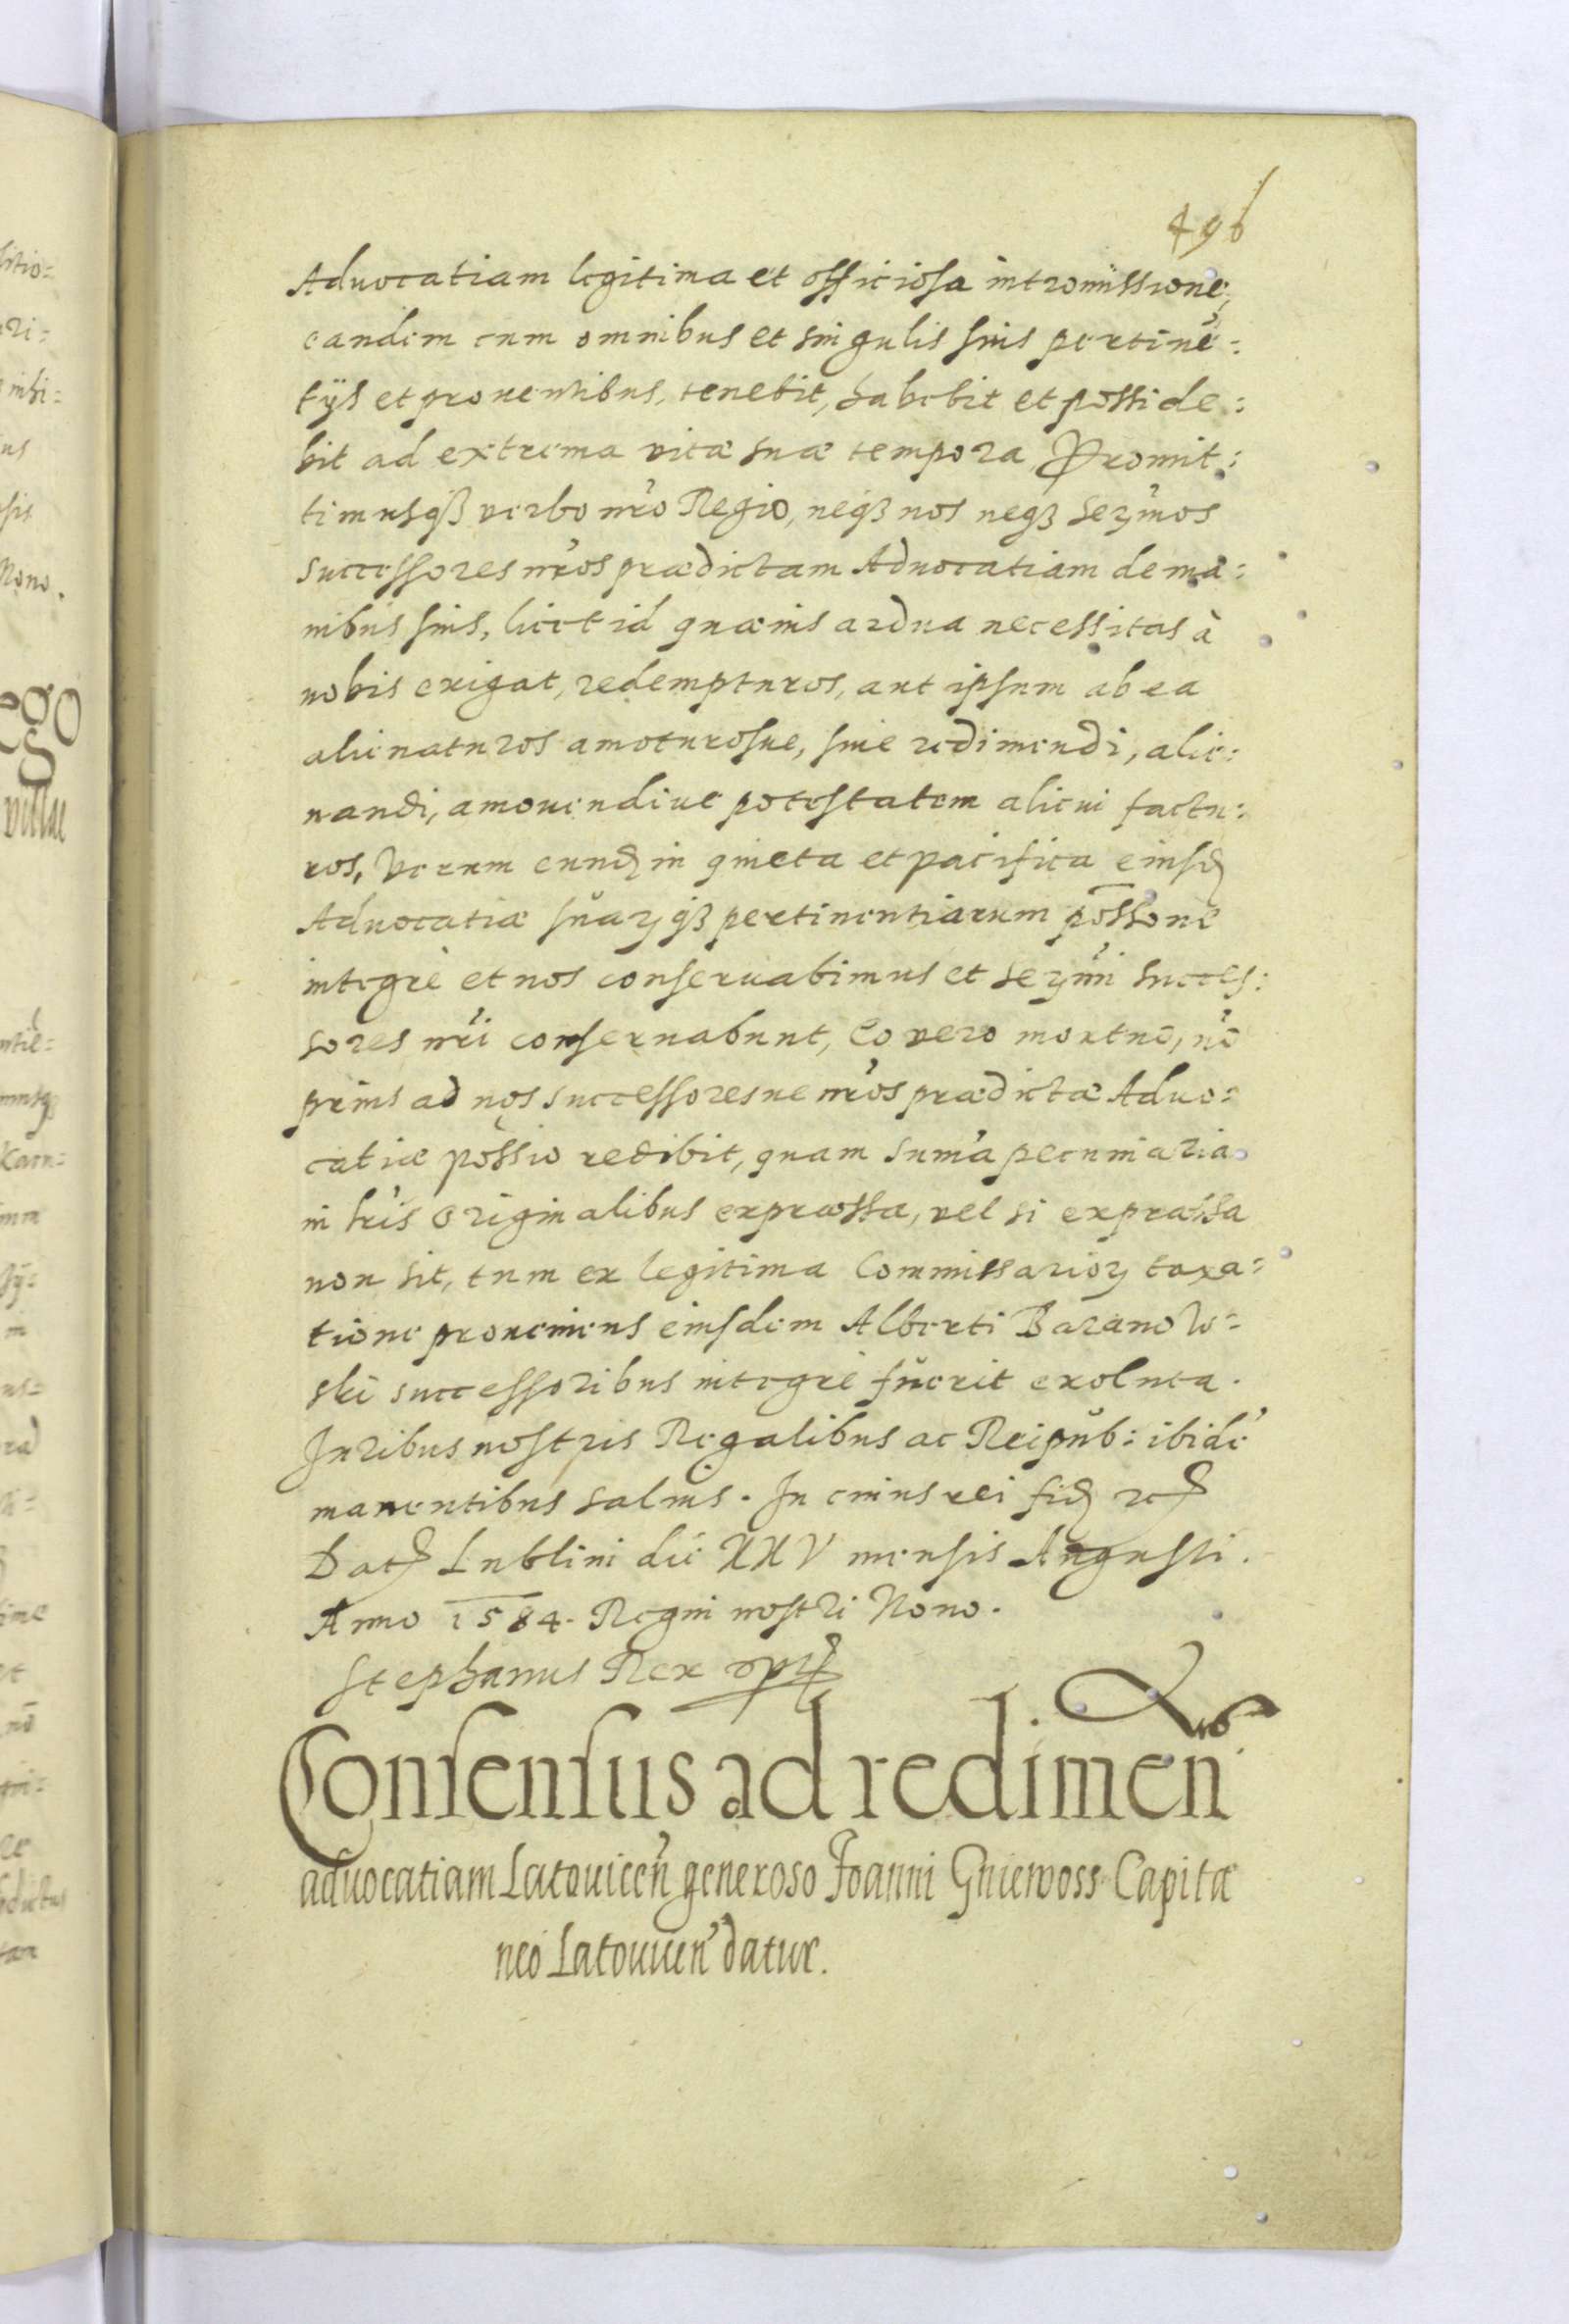 496
Aduocatiam legitima et officiosa intromissione,
eandem cum omnibus et singulis suis pertinē:
tijs et prouentibus, tenebit, habebit et posside:
bit ad extrema vitæ suæ tempora, Promit:
timusq3 verbo nr̃o Regio, neq3 nos neq3 Serm̃os
successores nr̃os prædictam Aduocatiam de ma:
nibus suis, licet id quæuis ardua necessitas à
nobis exigat, redempturos, aut ipsum ab ea
alienaturos amoturosue, siue redimendi, alie:
nandi, amouendiue potestatem alicui factu:
ros, Verum eund in quieta et pacifica eiusd
Aduocatiæ suarq3 pertinentiarum possone
integrè et nos conseruabimus et Serm̃i succes:
sores nr̃i conseruabunt, Eo vero mortuo, nō
prius ad nos successoresue nr̃os prædictæ Aduo:
catiæ possio redibit, quam sum̃a pecuniaria
in lr̃is Originalibus expræssa, vel si expræssa
non sit, tum ex legitima Commissarior taxa:
tione proueniens eiusdem Alberti Baranow:
ski successoribus integrè fuerit exoluta.
Juribus nostris Regalibus ac Reipub: ibidē
manentibus saluis. In cuius rei fid etc
Dat Lublini die XXV mensis Augusti.
Anno 1584. Regni nostri Nono.
Stephanus Rex
Consensus ad redimen̄
aduocatiam Latouicen̄ generoso Joanni Gniewoss Capitæ
neo Latouicen̄ datur.